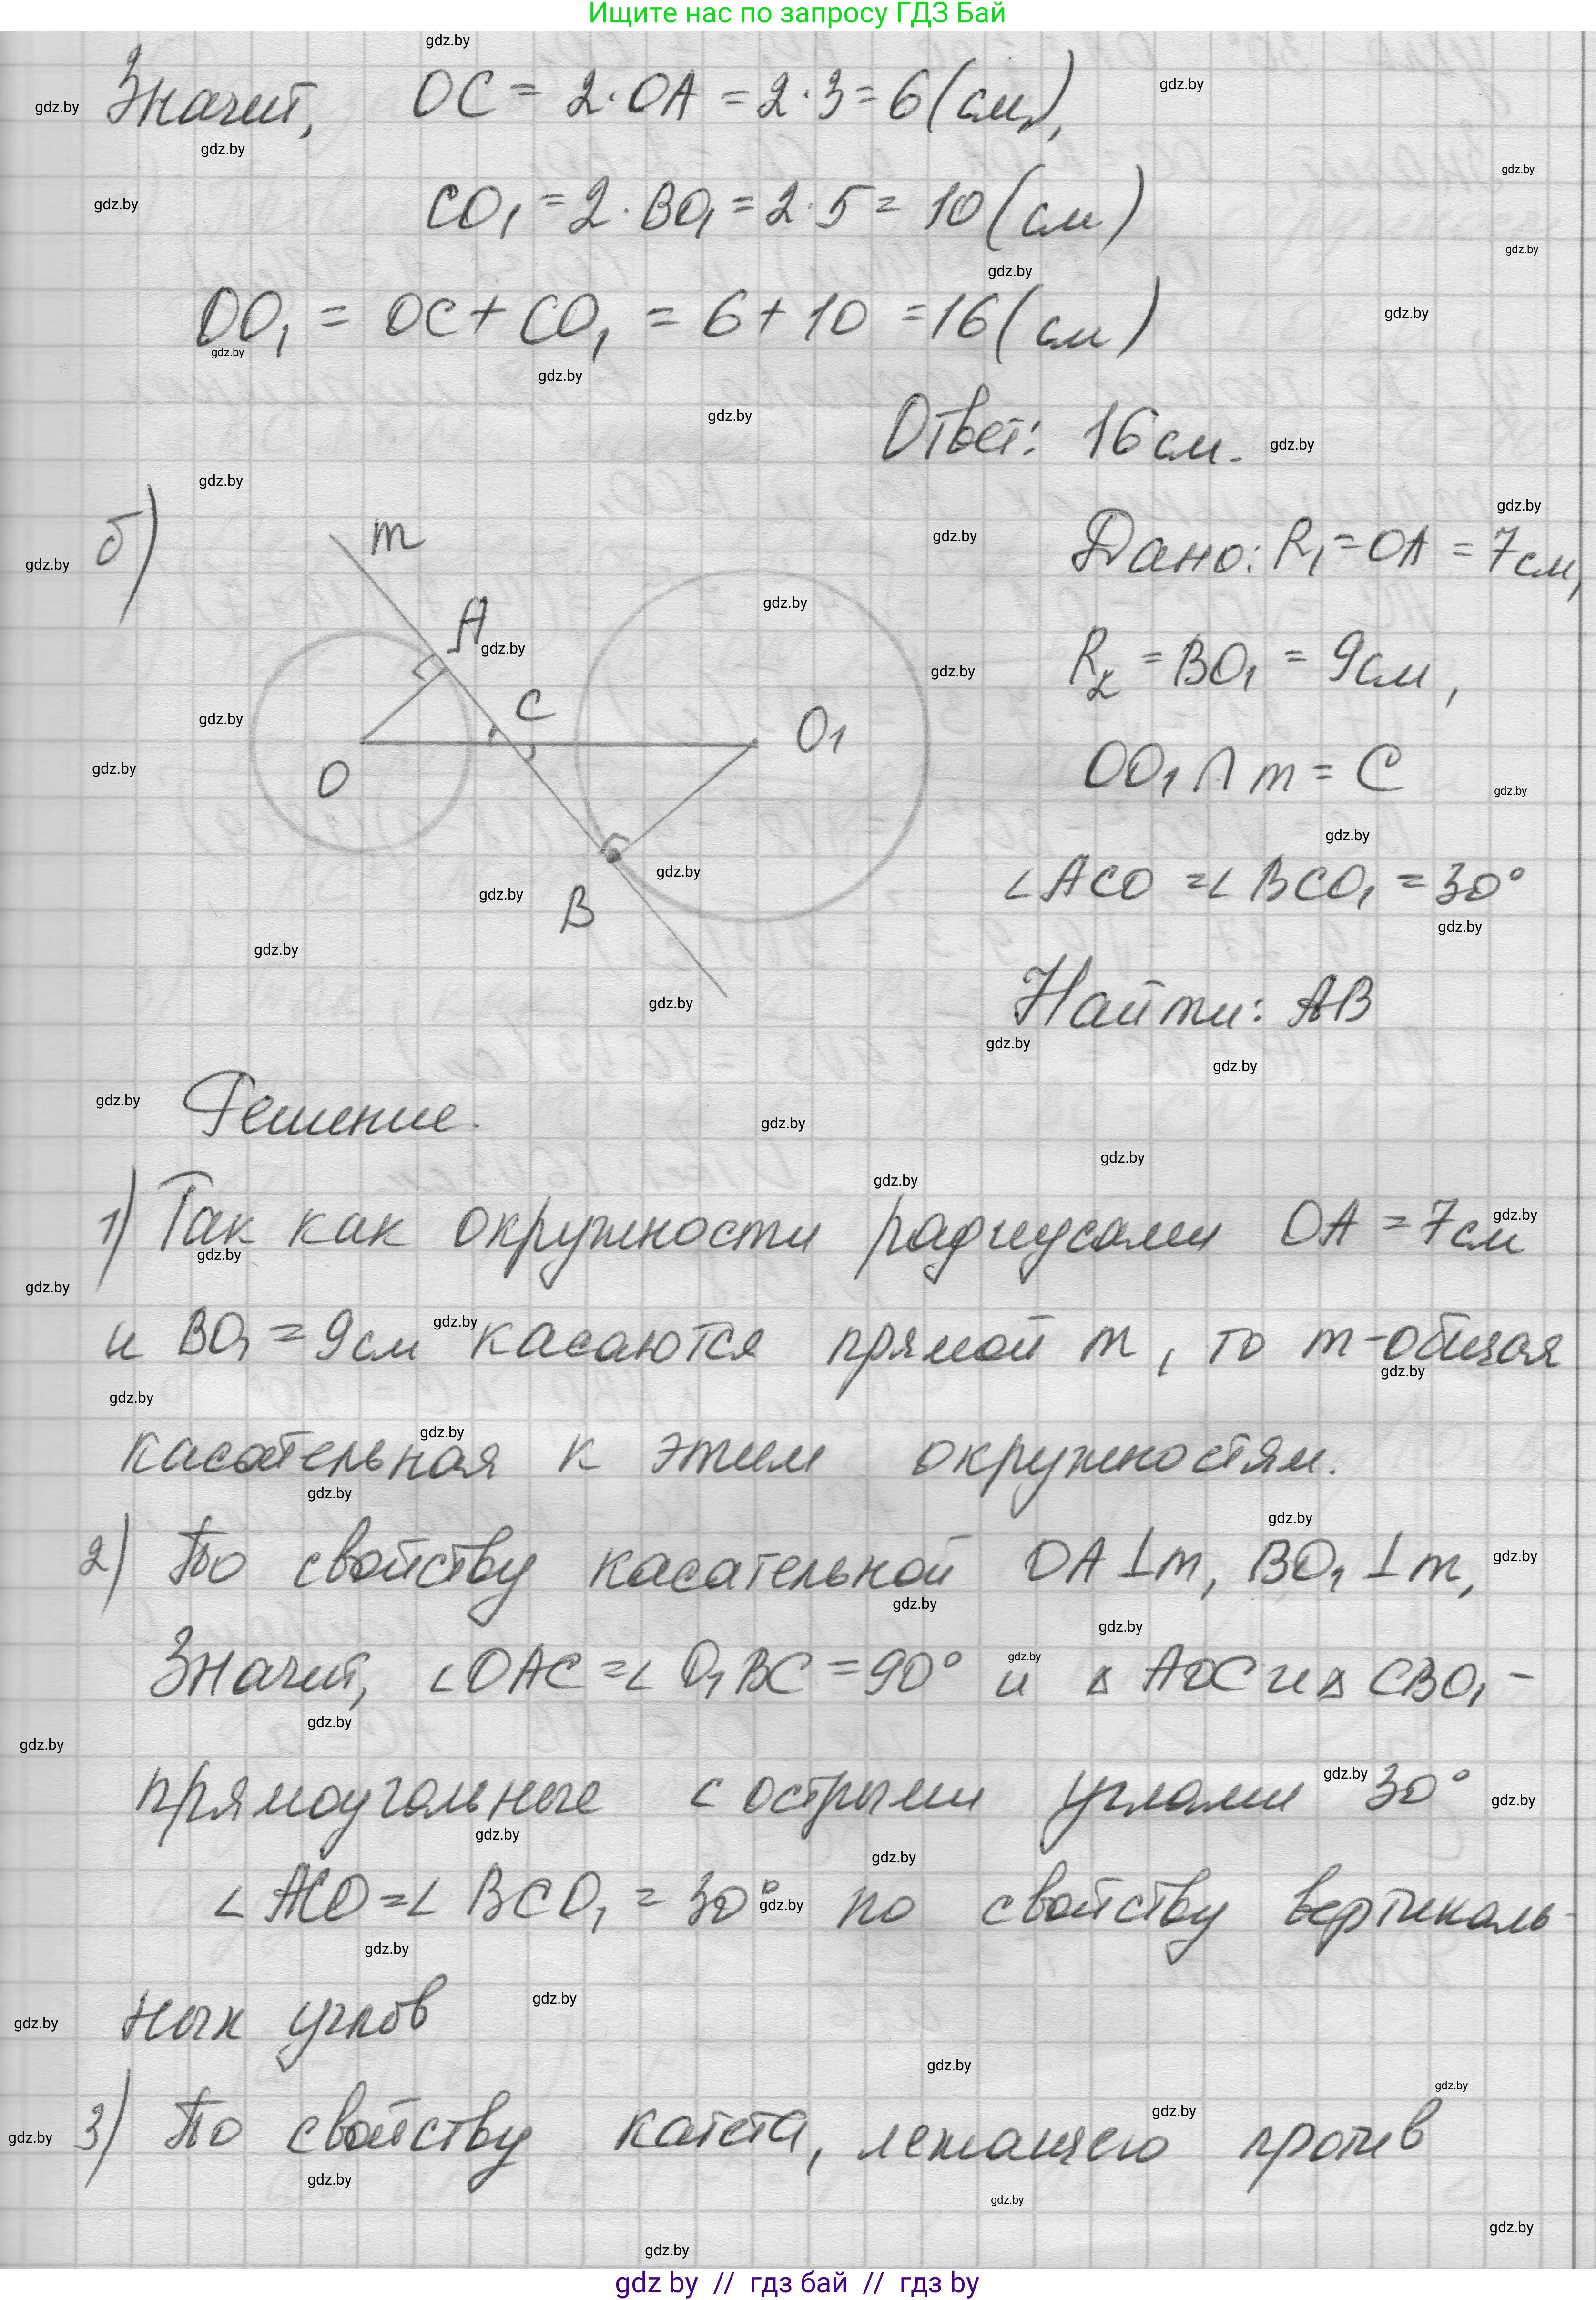 Ищите нас по запросу ГДЗ Бай
Значит, OC = 2·OA = 2·3 = 6(см),
CO₁ = 2·BO₁ = 2·5 = 10(см)
OO₁ = OC + CO₁ = 6 + 10 = 16(см)
Ответ: 16см.
б)
m
A
C
O₁
O
B
Дано: R₁ = OA = 7см,
R₂ = BO₁ = 9см,
OO₁ ∩ m = C
∠ACO = ∠BCO₁ = 30°
Найти: AB
Решение.
1) Так как окружности радиусами OA = 7см
и BO₁ = 9см касаются прямой m, то m-общая
касательная к этим окружностям.
2) По свойству касательной OA⊥m, BO₁⊥m,
Значит, ∠OAC = ∠O₁BC = 90° и △AOC и △CBO₁ -
прямоугольные с острыми углами 30°
∠ACO = ∠BCO₁ = 30° по свойству вертикаль-
ных углов
3) По свойству катета, лежащего против
gdz by // гдз бай // гдз by